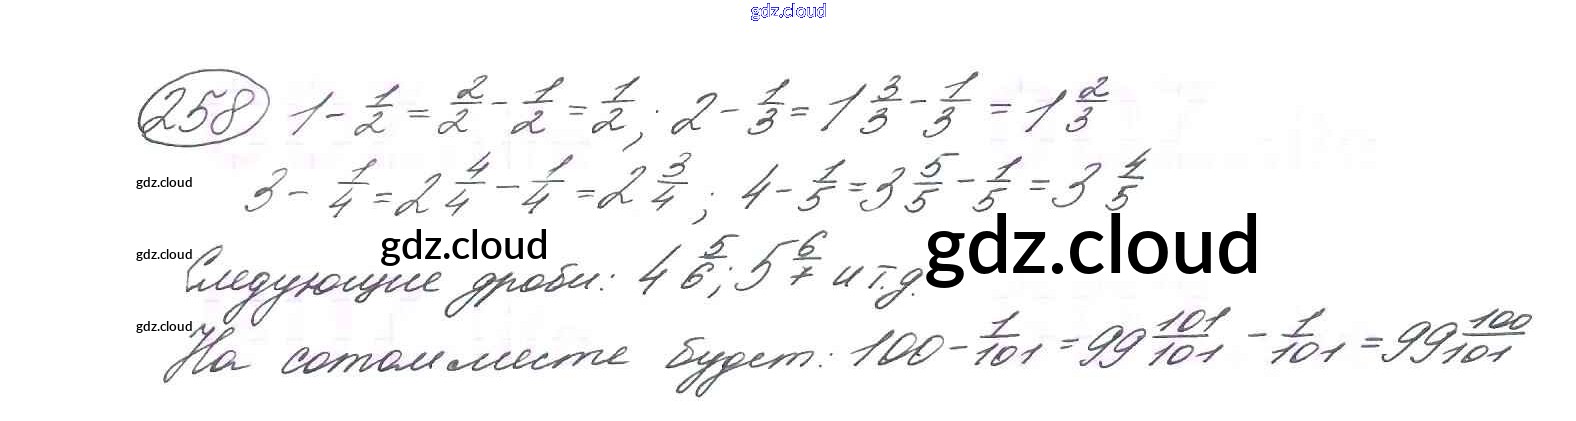 gdz.cloud
258 1 - 1/2 = 2/2 - 1/2 = 1/2; 2 - 1/3 = 1 3/3 - 1/3 = 1 2/3
3 - 1/4 = 2 4/4 - 1/4 = 2 3/4; 4 - 1/5 = 3 5/5 - 1/5 = 3 4/5
gdz.cloud
gdz.cloud gdz.cloud gdz.cloud
Следующие дроби: 4 5/6; 5 6/7 и т.д.
gdz.cloud
На сотом месте будет: 100 - 1/101 = 99 101/101 - 1/101 = 99 100/101